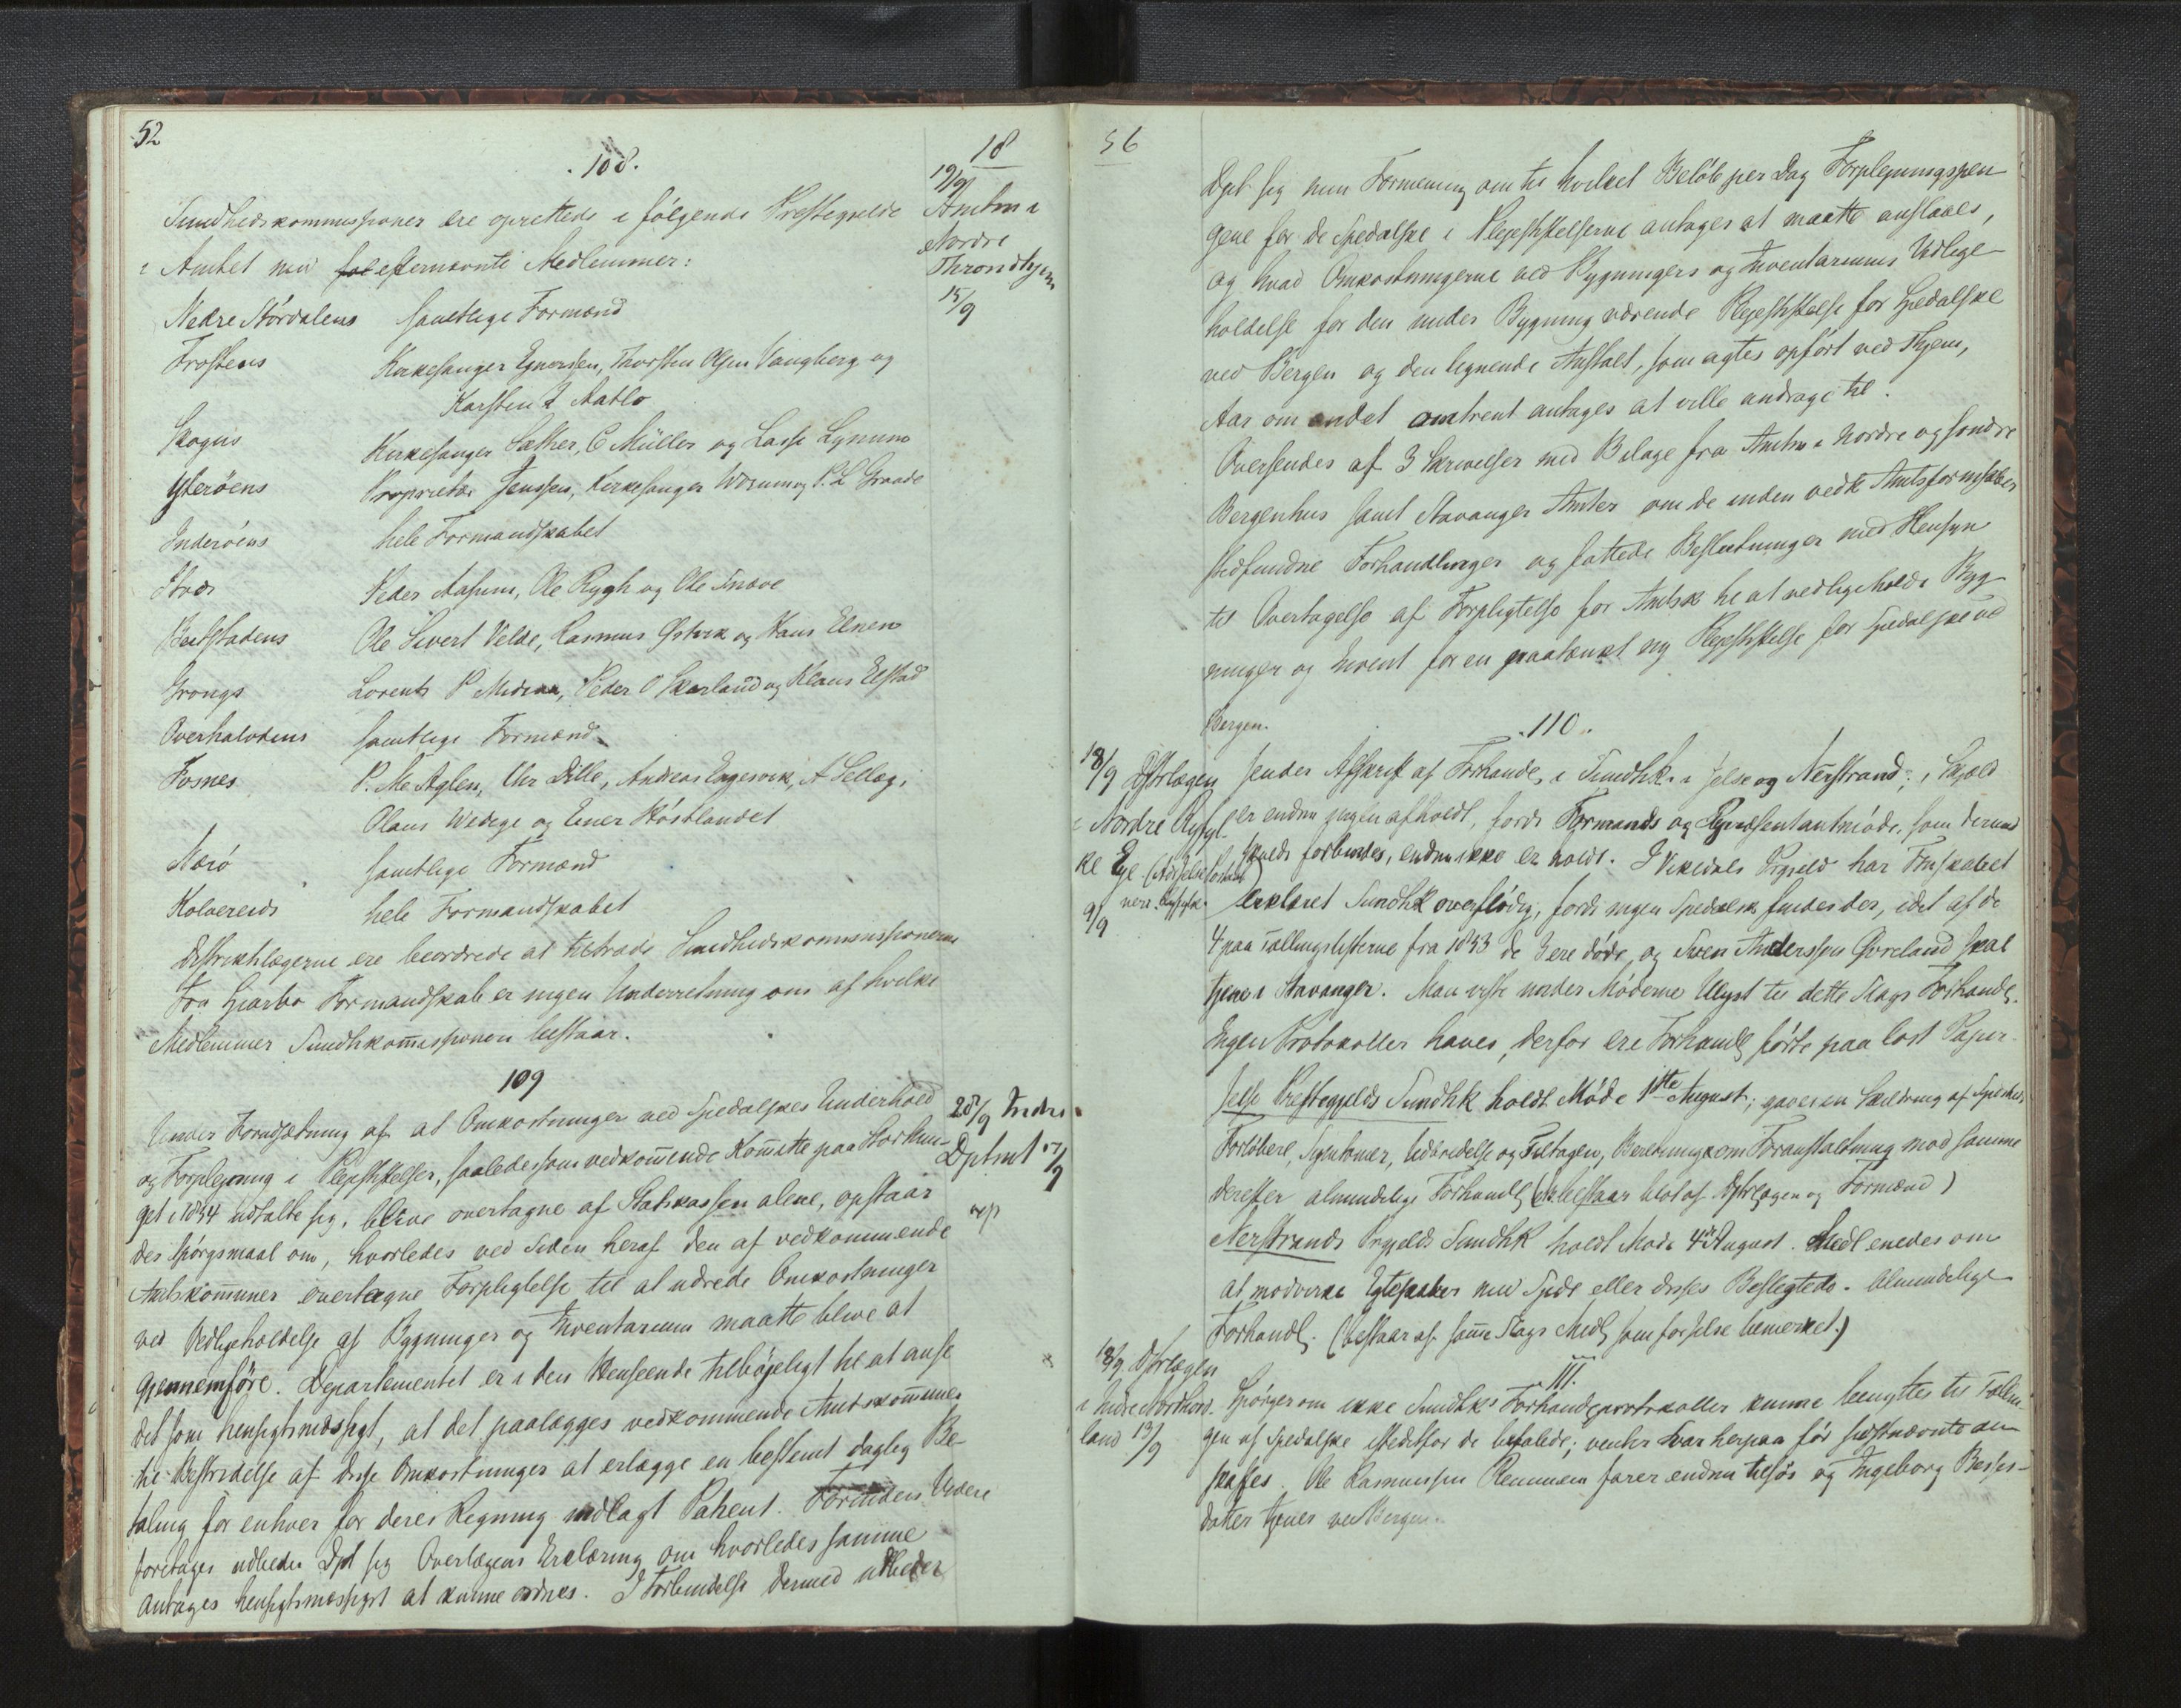 52
18
.108.
19/9
Sundhedskommissioner ere oprettede i følgende Præstegjelde
Amtm i
Nordre
Throndhjem
15/9
i Amtet med føl efternævnte Medlemmer:
Nedre Størdalens samtlige Formænd
Frostens Kirkesanger Ejnersen, Thorsten Olsen Vangberg og
Karsten Aatlo
Skogns Kirkesanger Sæther, C Müller og Lasse Lynum
Ytterøens Proprietær Jenssen, Kirkesanger Worum og P. L Graade
Inderøens hele Formandskabet
Peder Aasum, Ole Rygh og Ole Snove
Beitstadens Ole Sivert Velde, Rasmus Østvik og Hans Elnen
Grongs Lorents P Mediaa, Peder O Skarland og Klaus Elstad
Overhalvdens samtlige Formænd
Fosnes P. Me Aglen, Chr Dille, Andreas Engesvik, A Sellæg,
Olaus Wedege og Einer Høstlandet
Nærø samtlige Formænd
Kolvereids hele Formandskabet
Distriktslægerne ere beordrede at tiltræde Sundhedskommissionerne
Fra Sparbo Formandskab er ingen Underretning om af hvilke
Medlemmer Sundhkommissionen bestaar.
109
28/9 Indre
Dptmt 17/9
Under Forudsætning af at Omkostninger ved Spedalskes Underhold
og Forplejning i Plejestiftelser, saaledes som vedkommende Komitte paa Storthin-
get i 1854 udtalte sig, blive overtagne af Statskassen alene, opstaar
det Spørgsmaal om, hvorledes ved Siden heraf den af vedkommende
Amtskommuner overtagne Forpligtelse til at udrede Omkostninger
ved Vedligeholdelse af Bygninger og Inventarium maatte blive at
gjennemføre. Departementet er i den Henseende tilbøjeligt til at anse
det som hensigtsmæssigt, at det paalægges vedkommende Amtskommuner
til Bestridelse af disse Omkostninger at erlægge en bestemt daglig Be-
taling for enhver for deres Regning indlagt Patient. Forinden Videre
foretages udbeder Dpt sig Overlægens Erklæring om hvorledes samme
antages hensigtsmæssigst at kunne ordnes. I Forbindelse dermed udbeder
56
Dpt sig min Formening om til hvilket Beløb per Dag Forplejningspen-
gene for de Spedalske i Plejestiftelserne antages at maatte anslaaes,
og hvad Omkostningerne ved Bygningers og Inventariums Vedlige-
holdelse for den under Bygning værende Plejestiftelse for Spedalske
ved Bergen og den lignende Anstalt, som agtes opført ved Thjem,
Aar om andet omtrent antages at ville andrage til.
Oversendes af 3 Skrivelser med Bilage fra Amtm i Nordre og søndre
Bergenhus samt Stavanger Amter om de inden vedk Amtsformskaber
stedfundne Forhandlinger og fattede Beslutninger med Hensyn
til Overtagelse af Forpligtelse for Amtsk til at vedligeholde Byg-
ninger og Invent for en paatænkt ny Plejestiftelse for Spedalske ved
Bergen.
.110.
18/9 Dstrlægen
i Nordre Ryfyl-
ke
9/9
sender Afskrift af Forhandl i Sundhk i Jelse og Nerstrand; i Skjold
er endnu ingen afholdt, fordi Formands og Repræsentantmøde, som dermed
skulde forbindes, endnu ikke er holdt. I Vikedals Prgjeld har Fmskabet
erklæret Sundhk overflødig, fordi ingen Spedalsk findes der, idet af de
4 paa Tællingslisterne fra 1853 de 3 ere døde, og Sven Anderssen Øvreland skal
tjene i Stavanger. Man viste under Møderne Ulyst til dette Slags Forhandl.
Ingen Protokoller haves, derfor ere Forhandl førte paa løst Papir.
Jelse Præstegjelds Sundhk holdt Møde 1ste August; gaves en Skildring af Spedskh
Forløbere, Symtomer, Udbredelse og Tiltagen, Beretning om Foranstaltning mod samme
derefter almindelige Forhandl (bestaar blot af Dstrlægen og Formænd)
Nerstrands Prgjelds Sundhk holdt Møde 4de August. Medl enedes om
at modvirke Egteskaber med Spdk eller disses Beslegtede. Almindelige
Forhandl. (bestaar af samme Slags Medl som for Jelse bemerket.)
111.
18/9 Dstrlægen
i Indre Nordhord-
land 13/9
Spørger om ikke Sundhks Forhandsprotokoller kunne benyttes til Tællin-
gen af Spedalske istedetfor de befalede; venter Svar herpaa før sidstnævnte an-
skaffes. Ole Rasmussen Remmem farer endnu tilsøs og Ingeborg Besses-
datter tjener ved Bergen.